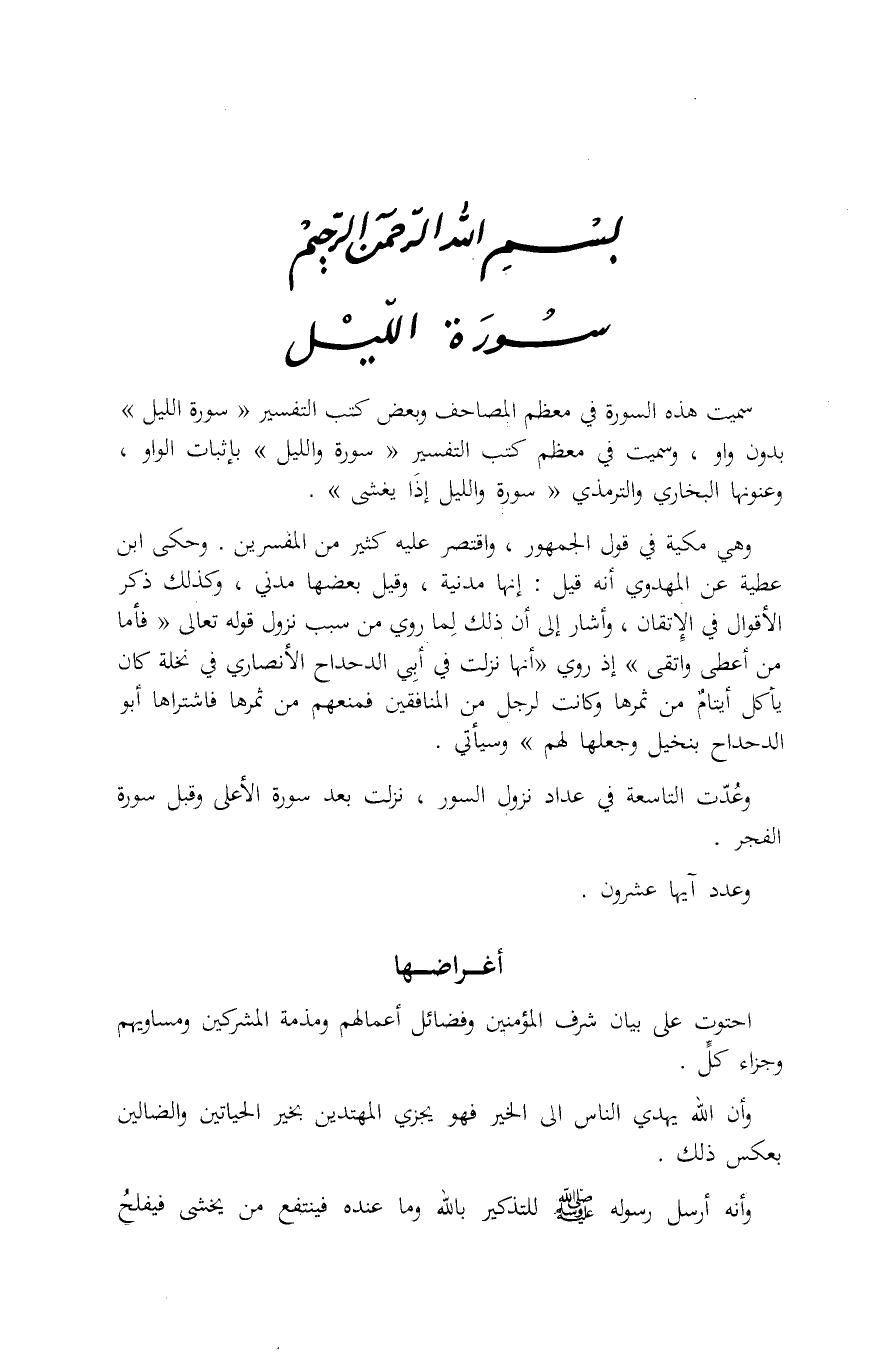 بِسْمِ اللهِ الرَّحْمَنِ الرَّحِيمِ
سُورَة اللَّيْل
سميت هذه السورة في معظم المصاحف وبعض كتب التفسير « سورة الليل »
بدون واو ، وسميت في معظم كتب التفسير « سورة والليل » بإثبات الواو ،
وعنونها البخاري والترمذي « سورة والليل إذَا يغشى » .
وهي مكية في قول الجمهور ، واقتصر عليه كثير من المفسرين . وحكى ابن
عطية عن المهدوي أنه قيل : إنها مدنية ، وقيل بعضها مدني ، وكذلك ذكر
الأقوال في الإِتقان ، وأشار إلى أن ذلك لِما روي من سبب نزول قوله تعالى « فأما
من أعطى واتقى » إذ روي «أنها نزلت في أبِي الدحداح الأنصاري في نخلة كان
يأكل أيتامٌ من ثمرها وكانت لرجل من المنافقين فمنعهم من ثمرها فاشتراها أبو
الدحداح بنخيل وجعلها لهم » وسيأتي .
وعُدّت التاسعة في عداد نزول السور ، نزلت بعد سورة الأعلى وقبل سورة
الفجر .
وعدد آيها عشرون .
أغـراضـها
احتوت على بيان شرف المؤمنين وفضائل أعمالهم ومذمة المشركين ومساويهم
وجزاء كلٍّ .
وأن الله يهدي الناس الى الخير فهو يجزي المهتدين بخير الحياتين والضالين
بعكس ذلك .
وأنه أرسل رسوله ﷺ للتذكير بالله وما عنده فينتفع من يخشى فيفلحُ